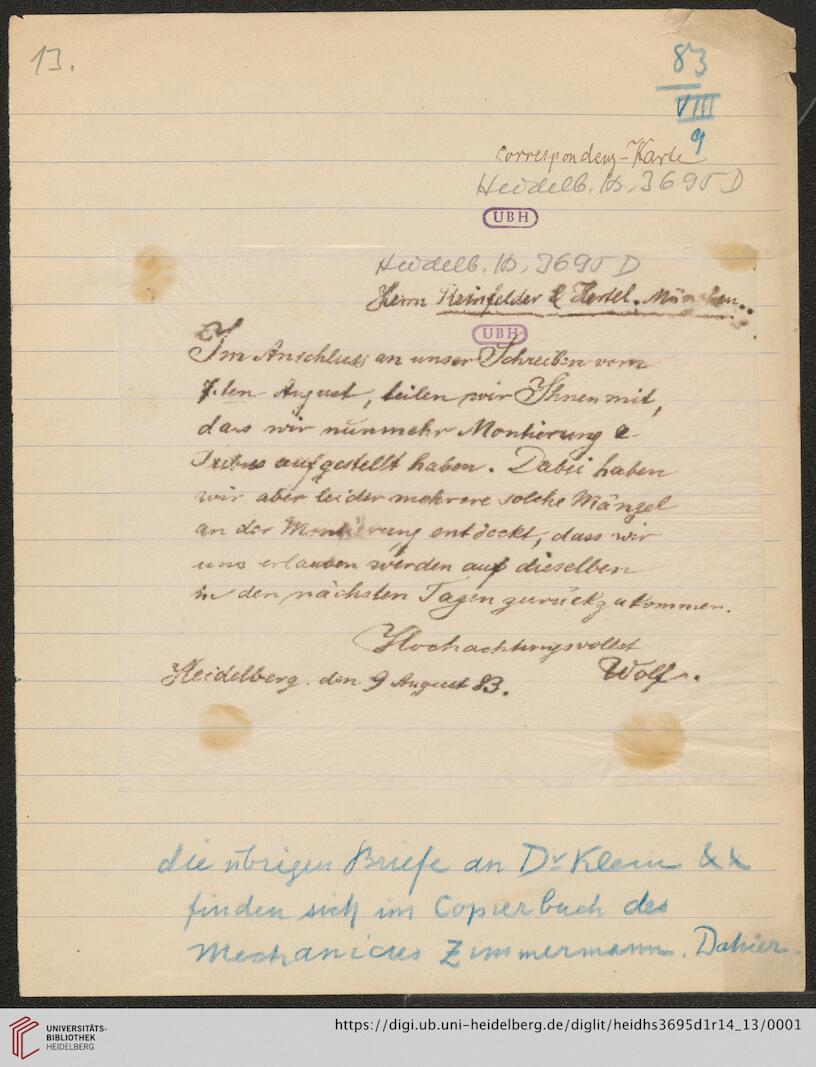 13.
83
VIII
9
Correspondenz-Karte
Heidelb. Hs. 3695 D
UBH
Heidelb. Hs. 3695 D
Herrn Reinfelder & Hertel. München.
UBH
Im Anschluss an unser Schreiben vom
7.ten August, teilen wir Ihnen mit,
dass wir nunmehr Montierung &
aufgestellt haben. Dabei haben
wir aber leider mehrere solche Mängel
an der Montierung entdeckt, dass wir
uns erlauben werden auf dieselben
in den nächsten Tagen zurückzukommen.
Hochachtungsvollst
Heidelberg. den 9 August 83. Wolf.
die übrigen Briefe an Dr Klein &&
finden sich im Copierbuch des
Mechanicus Zimmermann. Dahier.
UNIVERSITÄTS-
BIBLIOTHEK
HEIDELBERG
https://digi.ub.uni-heidelberg.de/diglit/heidhs3695d1r14_13/0001